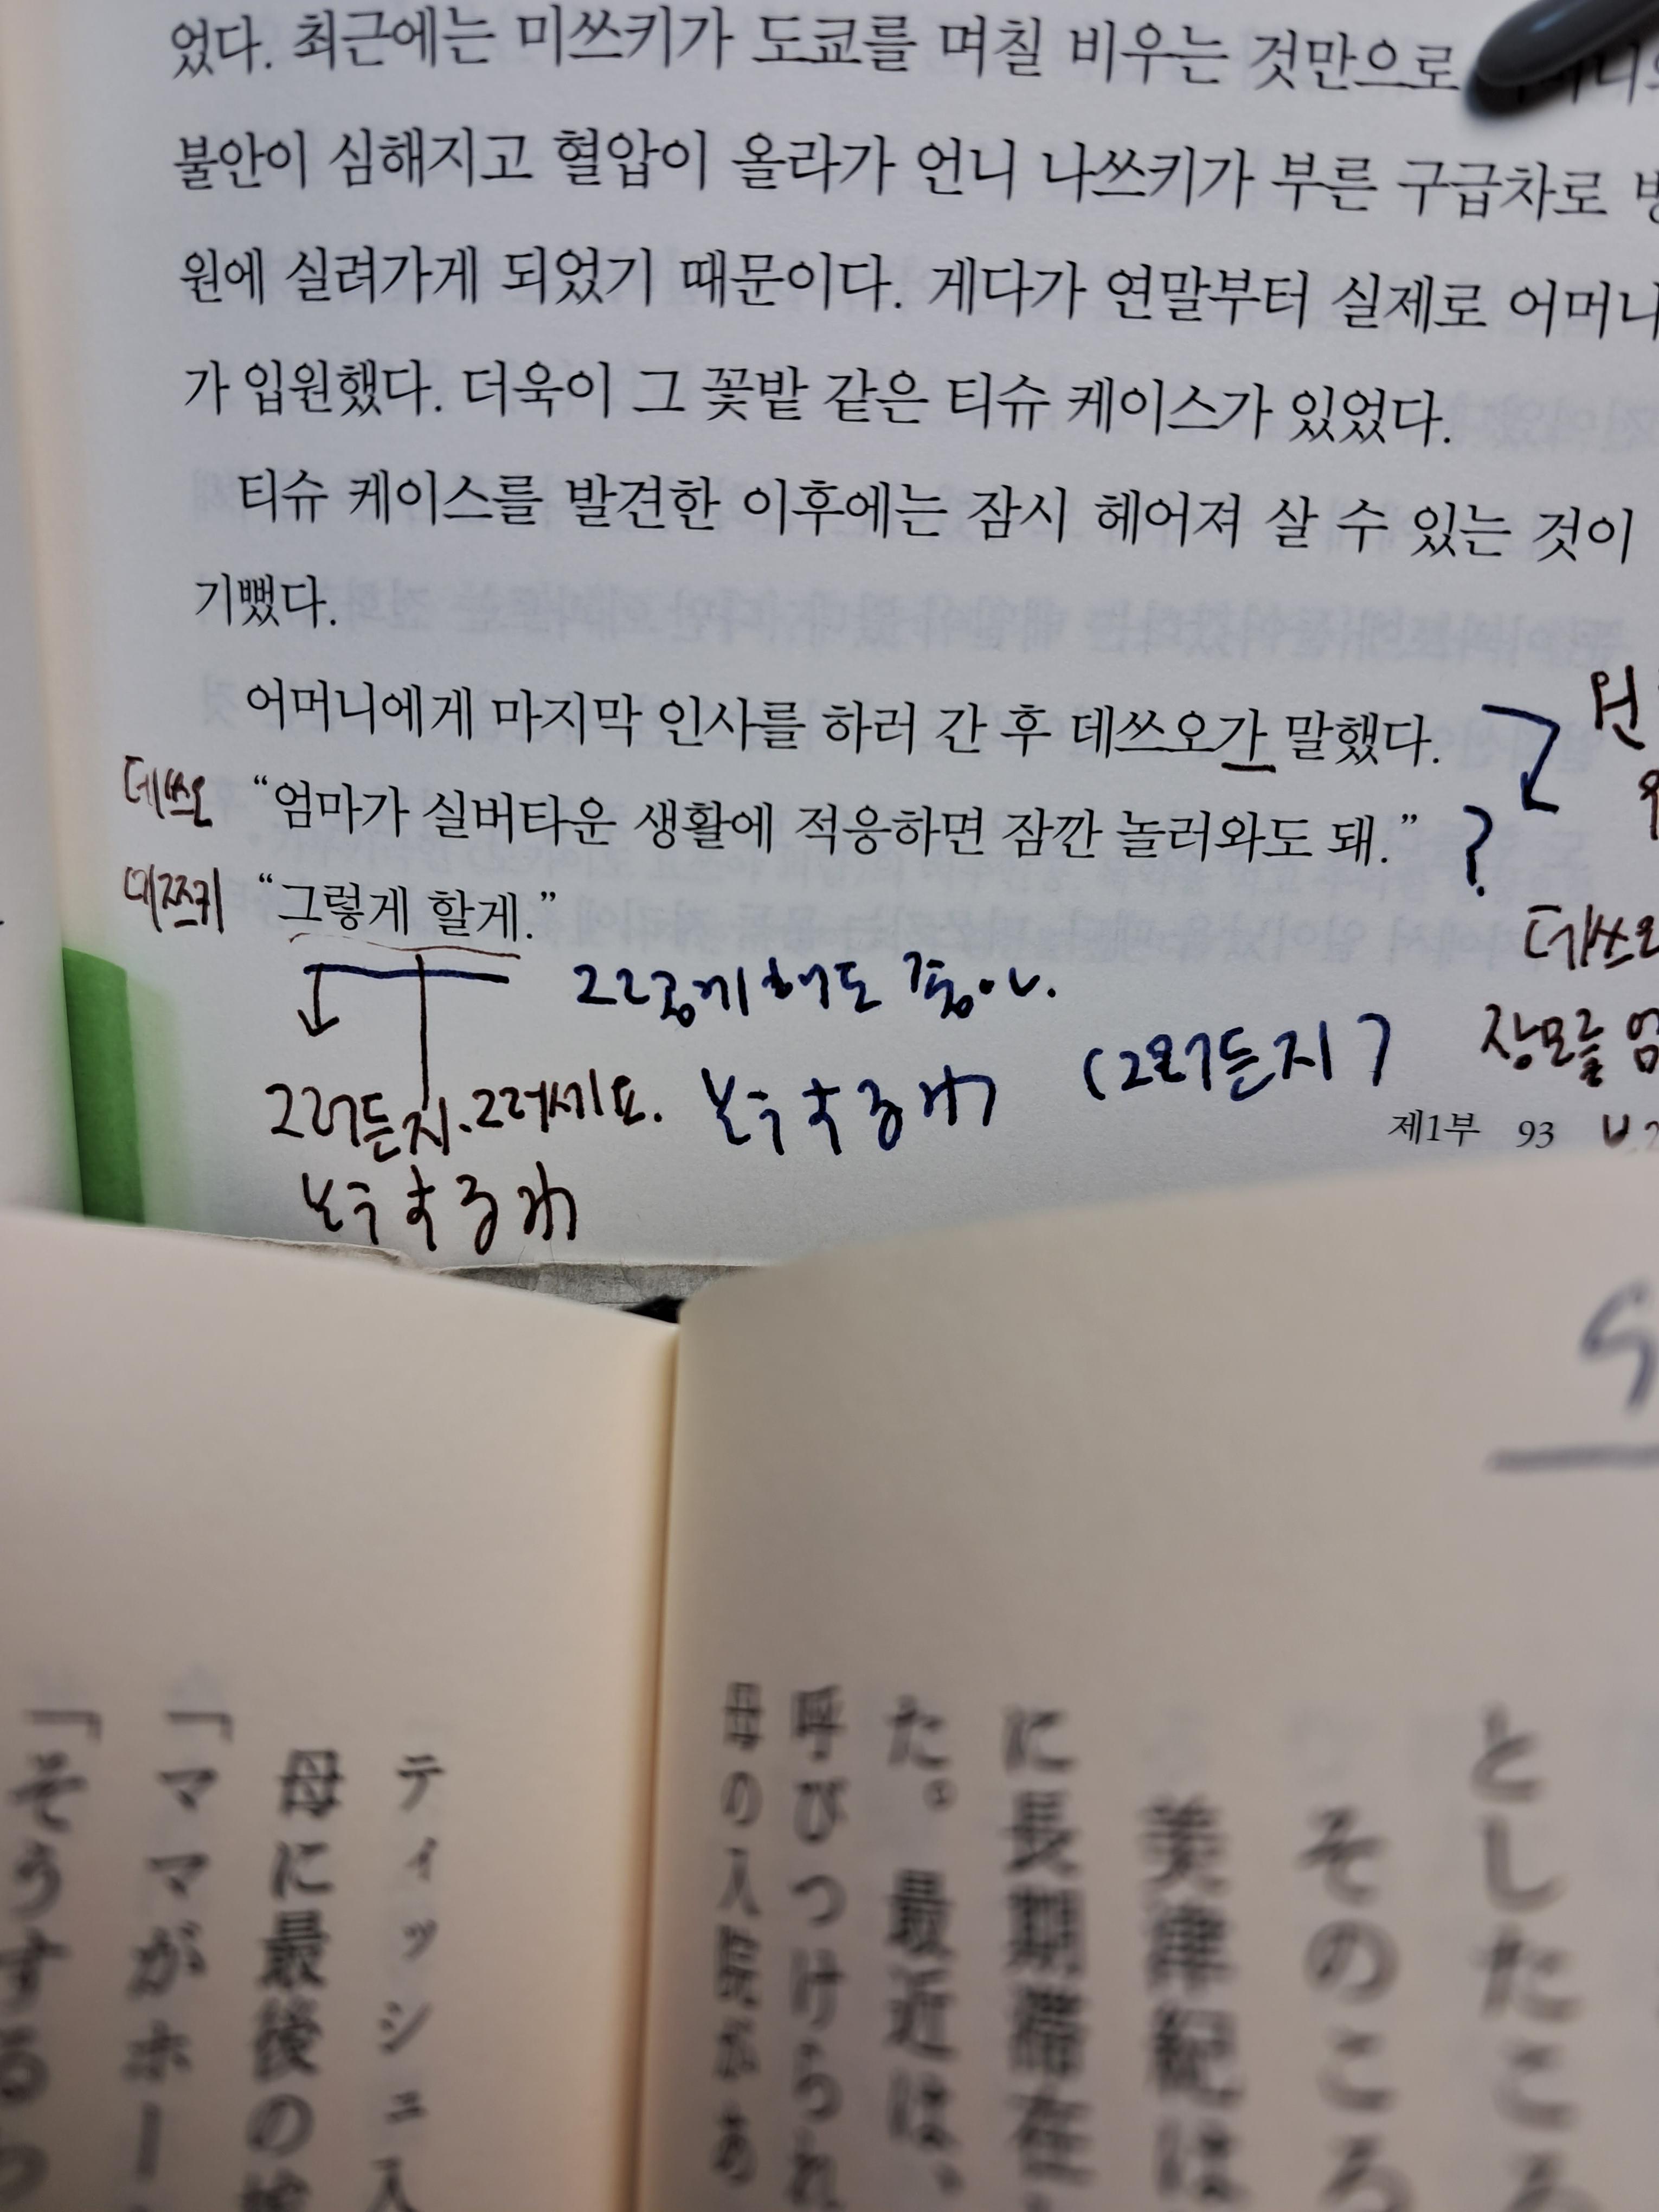 었다. 최근에는 미쓰키가 도쿄를 며칠 비우는 것만으로
불안이 심해지고 혈압이 올라가 언니 나쓰키가 부른 구급차로
원에 실려가게 되었기 때문이다. 게다가 연말부터 실제로 어머니
가 입원했다. 더욱이 그 꽃밭 같은 티슈 케이스가 있었다.
티슈 케이스를 발견한 이후에는 잠시 헤어져 살 수 있는 것이
기뻤다.
어머니에게 마지막 인사를 하러 간 후 데쓰오가 말했다.
데쓰오 “엄마가 실버타운 생활에 적응하면 잠깐 놀러와도 돼.” ?
미쯔키 “그렇게 할게.”
데쓰오
장모를 엄
그렇게 해도 좋아.
(그러든지)
그러든지. 그러세요.
제1부 93
としたころ
そのころ
美津紀は
に長期滞在
た。最近は、
呼びつけられ
母の入院があ
ティッシュ入
母に最後の挨
「ママがホー
「そうするわ